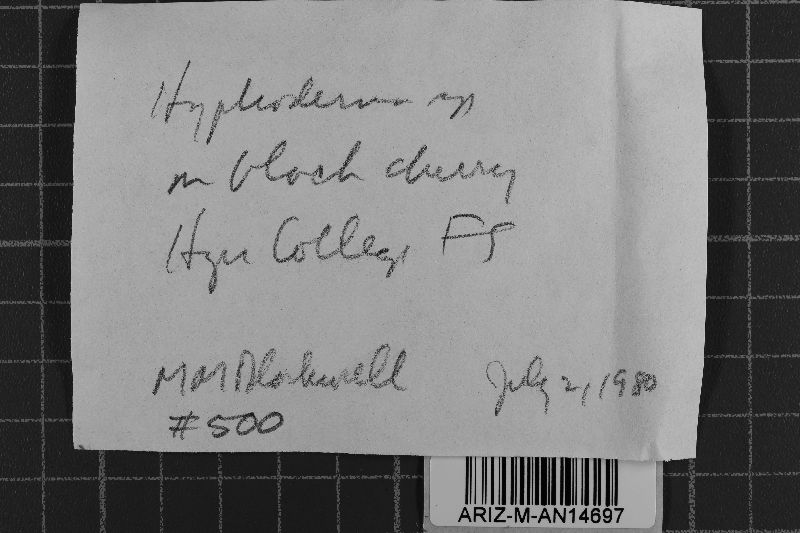 Hyphoderma sp
on black cherry
College FS
MM Blackwell July 2, 1980
#500
ARIZ-M-AN14697